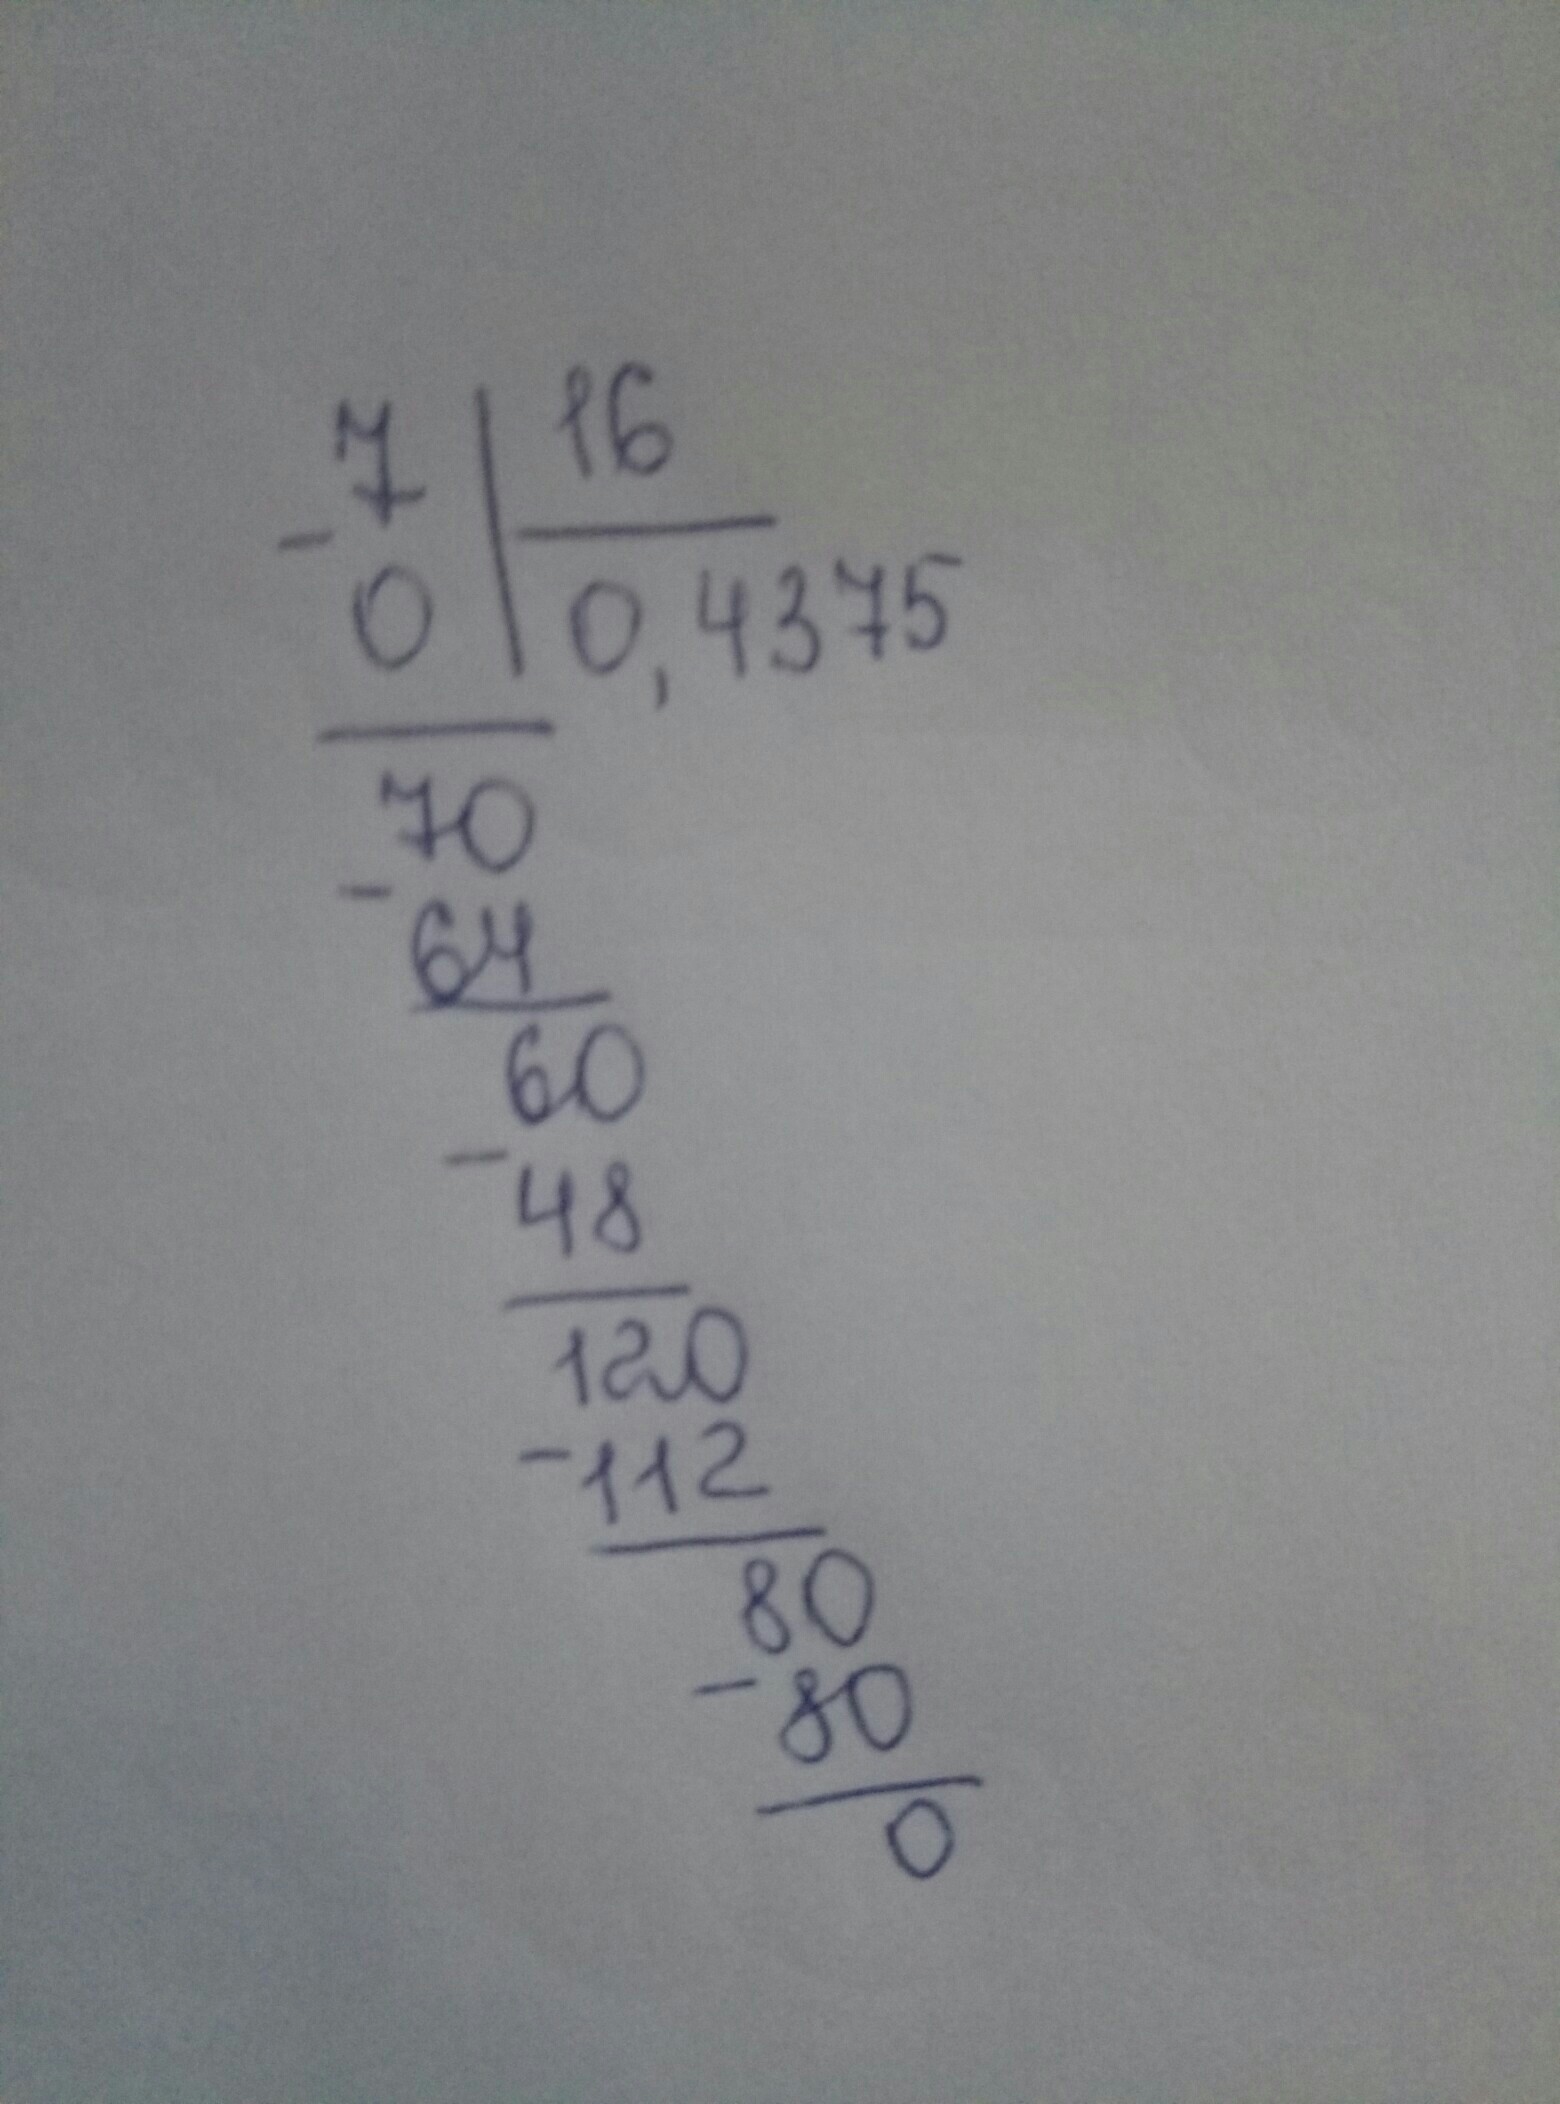 7 | 16
- 0 | 0,4375
70
- 64
60
- 48
120
- 112
80
- 80
0